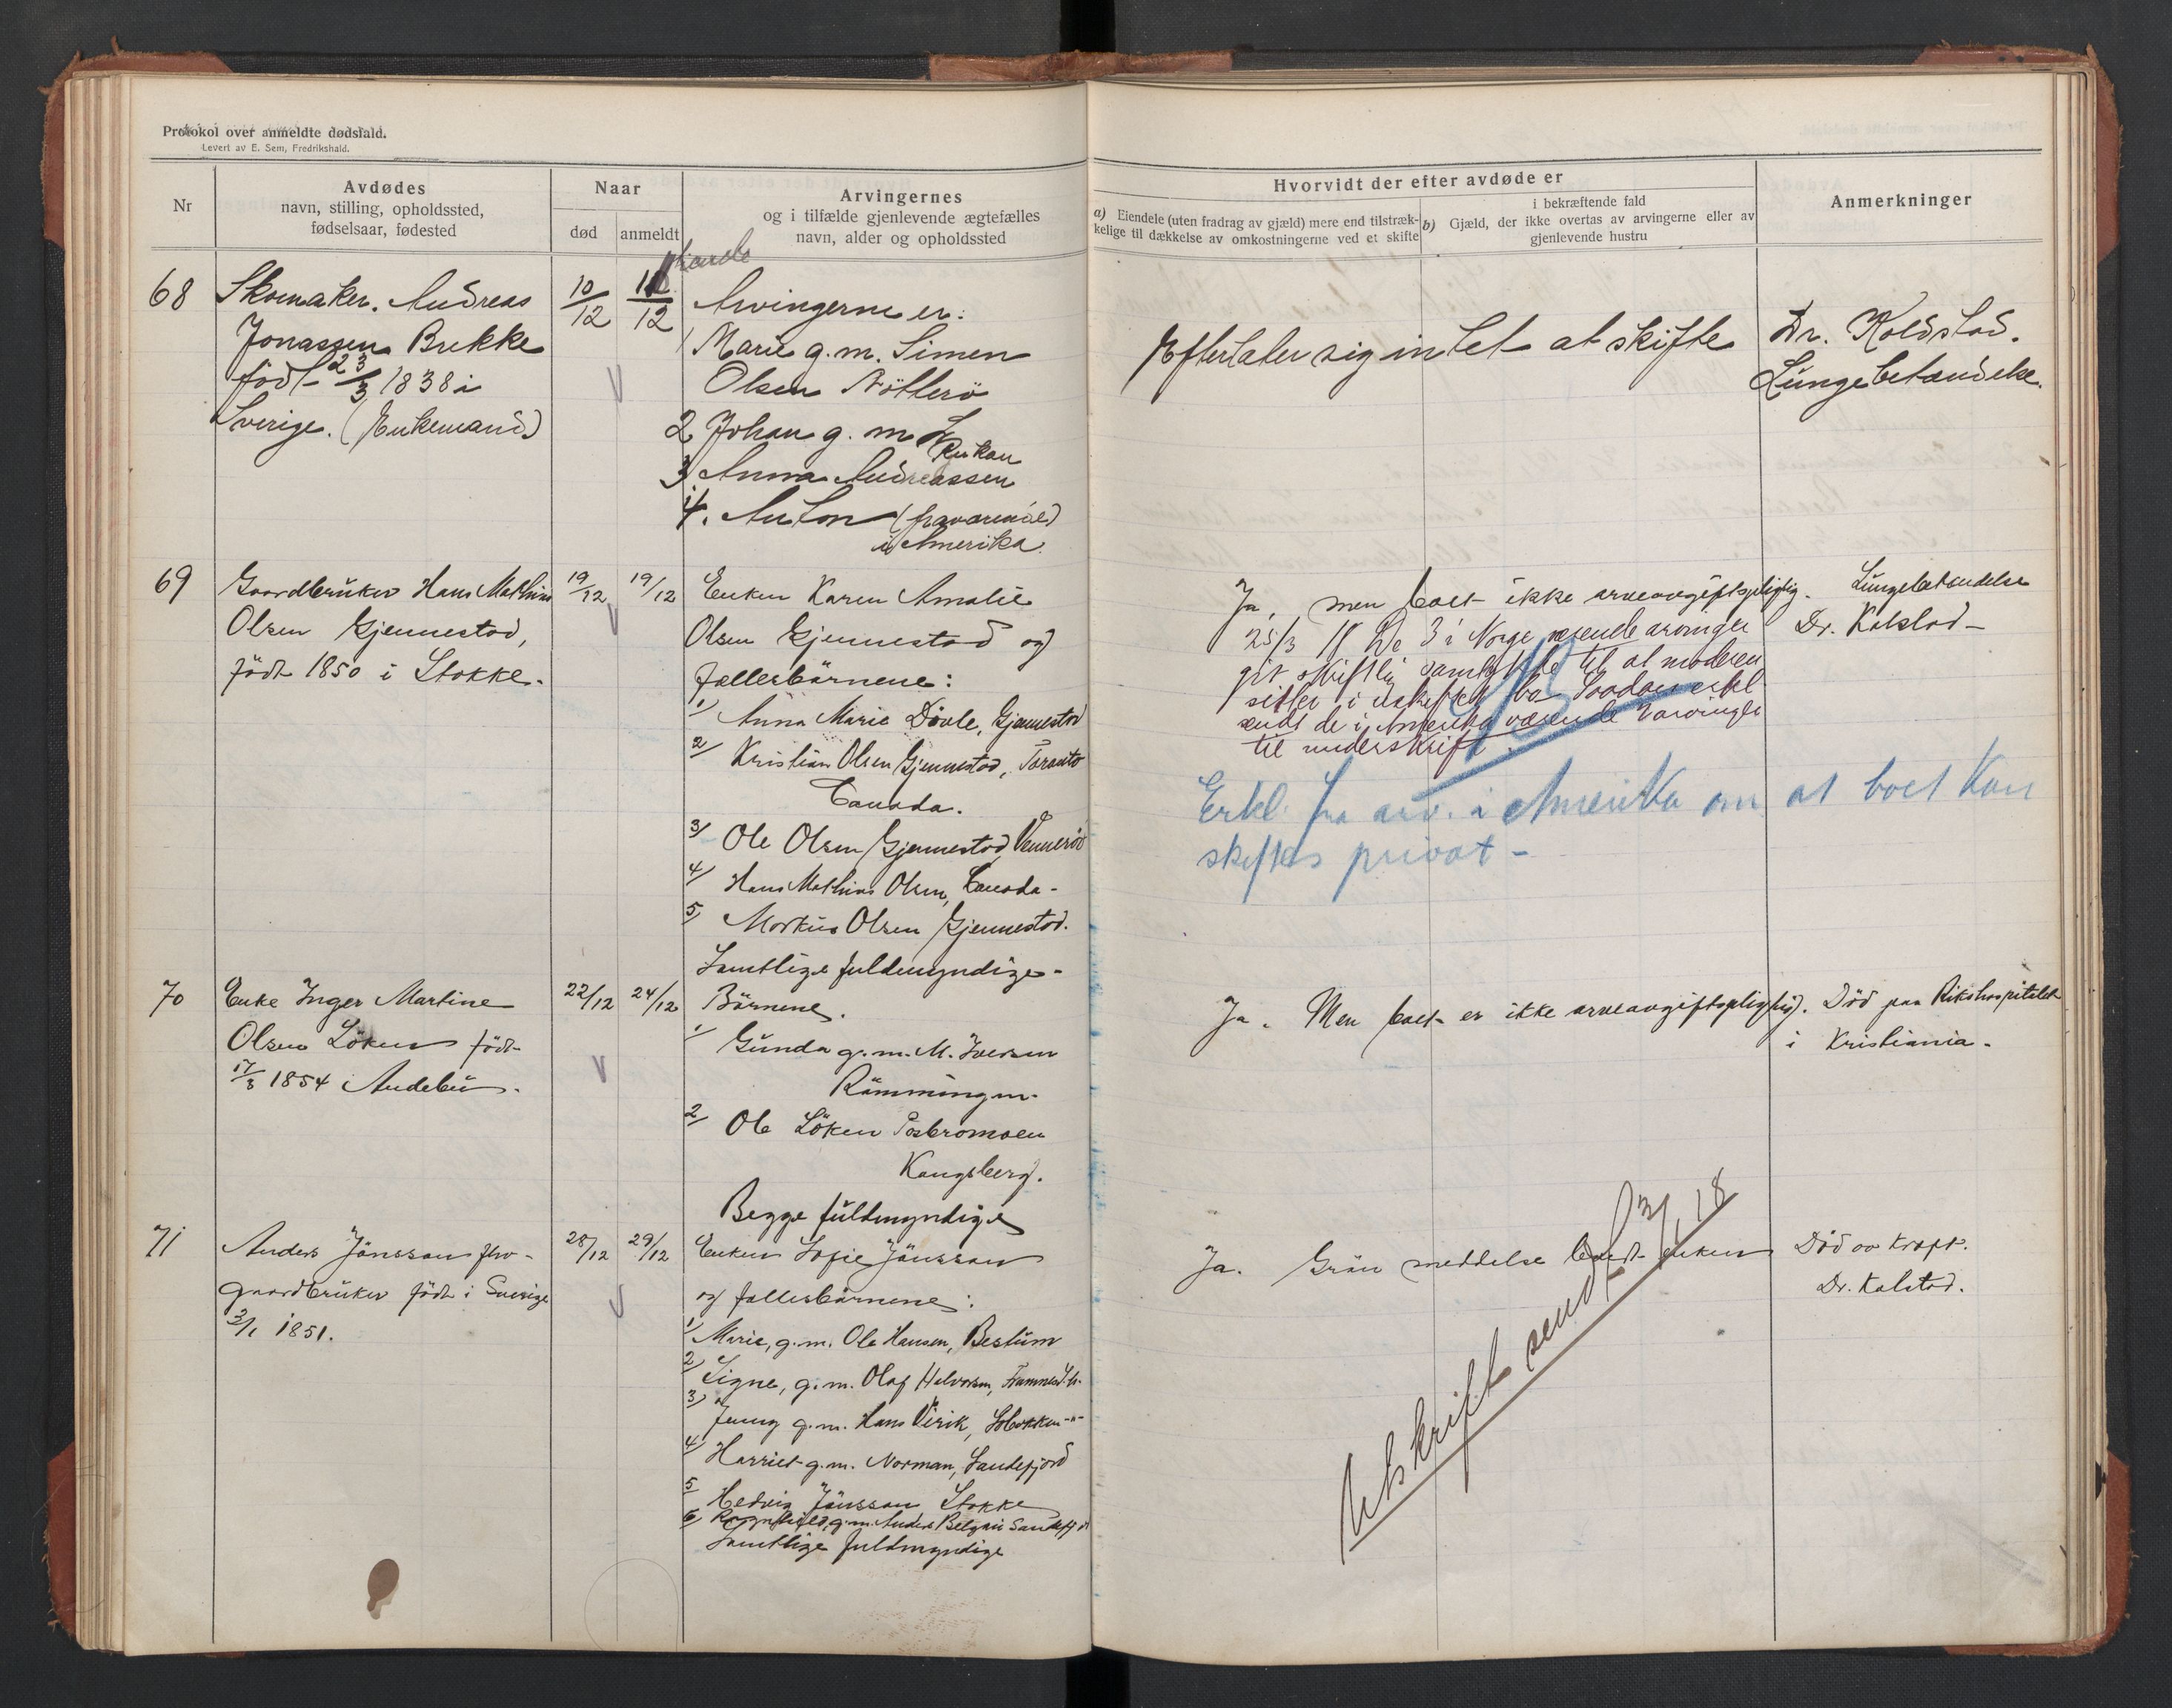 Protokol over anmeldte dødsfald.
Levert av E. Sem, Fredrikshald.
Nr
Avdødes
navn, stilling, opholdssted,
fødselsaar, fødested
Naar
død
anmeldt
Arvingernes
og i tilfælde gjenlevende ægtefælles
navn, alder og opholdssted
Hvorvidt der efter avdøde er
a) Eiendele (uten fradrag av gjæld) mere end tilstræk-
kelige til dækkelse av omkostningerne ved et skifte
i bekræftende fald
b) Gjæld, der ikke overtas av arvingerne eller av
gjenlevende hustru
Anmerkninger
68
Skomaker. Andreas
Jonassen Brekke
född 23/3 1838 i
Sverige. (Enkemand)
10/12
12/12
Arvingerne er:
1 Marie g. m. Simen
Olsen Nötterö
2 Johan g. m.
Rukan
3 Anna Andreassen
4. Anton (fraværende)
i Amerika.
Efterlater sig intet at skifte
Dr. Koldstad.
Lungebetændelse.
69
Gaardbruker Hans Mathias
Olsen Gjennestad,
født 1850 i Stokke.
19/12
19/12
Enken Karen Amalie
Olsen Gjennestad og
fællesbörnene:
1/ Anna Marie Dövle, Gjennestad
2/ Kristian Olsen Gjennestad, Toronto
Canada.
3/ Ole Olsen Gjennestad, Venneröd
4/ Hans Mathias Olsen, Canada-
5/ Markus Olsen Gjennestad.
Samtlige fuldmyndige-
Ja, men boet ikke arveavgiftspligtig.
25/3 18 De 3 i Norge værende arvinger
git skriftlig samtykke til at moderen
sitter i uskiftet bo Saadan erkl.
sendt de i Amerika værende 2 arvinger
til underskrift.
Erkl. fra arv. i Amerika om at boet kan
skiftes privat -
Lungebetændelse
Dr. Kolstad-
70
Enke Inger Martine
Olsen Löken født
17/3 1854 Andebu.
22/12
24/12
Börnene.
1/ Gunda g. m. M. Iversen
Römmingen.
2/ Ole Löken
Kongsberg.
Begge fuldmyndige
Ja. Men boet er ikke arveavgiftspligtig.
Död paa Rikshospitalet
i Kristiania.
71
Anders Jönsson fhv-
gaardbruker født i Sverige
3/1 1851.
28/12
29/12
Enken Sofie Jönsson
og fællesbörnene:
1/ Marie, g. m. Ole Hansen, Bestum
2/ Signe, g. m. Olaf Halvorsen,
3/ Jenny g. m. Hans Virik,
4/ Harriet g. m. Norman, Sandefjord
5 Hedvig Jönsson Stokke
6/ Ragnhild, g. m. Anders
Samtlige fuldmyndige
Ja. Grön meddelse sendt enken
Utskrift sendt 3/1 18
Död av kræft.
Dr. Kolstad.